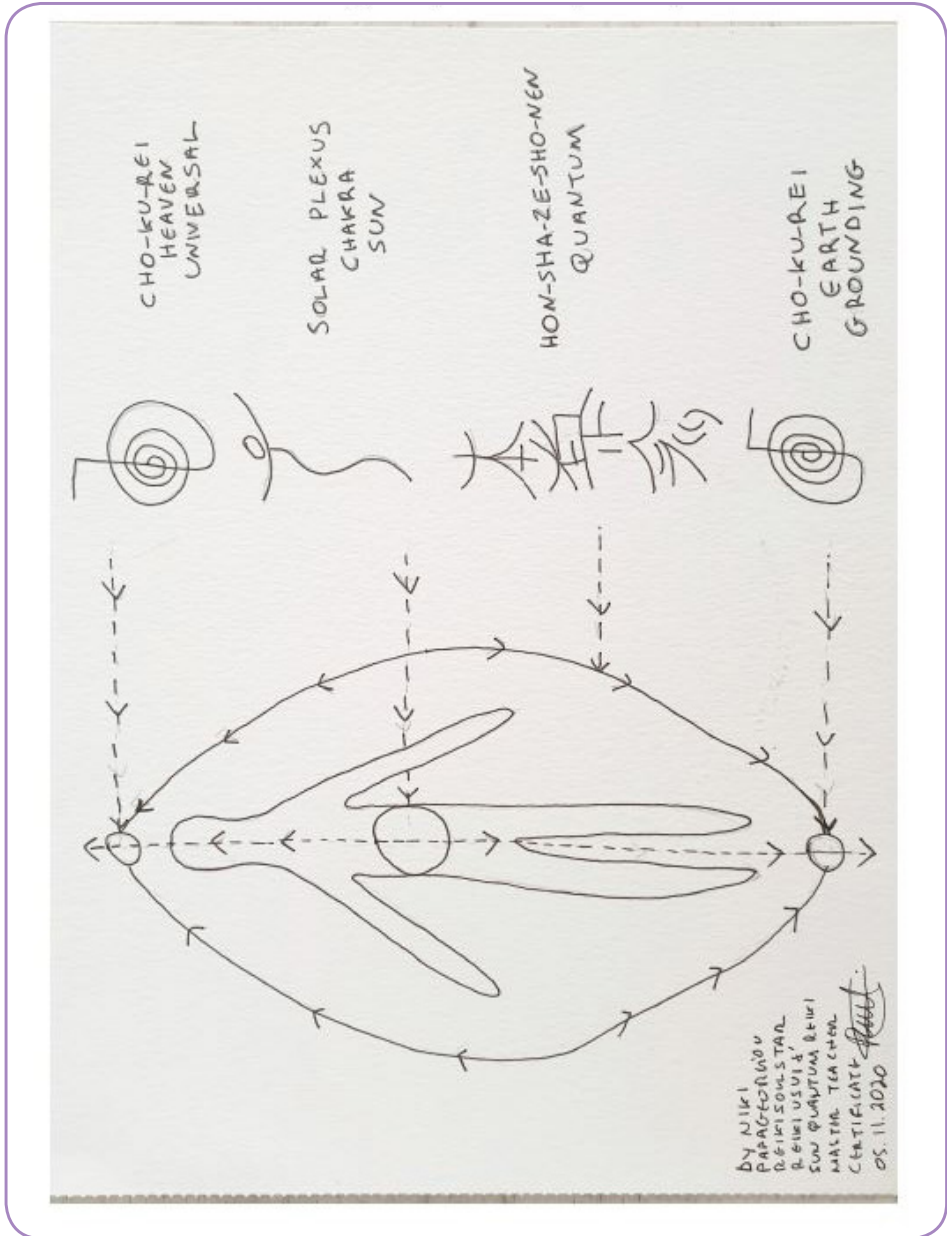 CHO-KU-REI
HEAVEN
UNIVERSAL
SOLAR PLEXUS
CHAKRA
SUN
HON-SHA-ZE-SHO-NEN
QUANTUM
CHO-KU-REI
EARTH
GROUNDING
BY NIKI
PAPAGEORGIOU
REIKISOULSTAR
REIKI USUI &
SUN QUANTUM REIKI
MASTER TEACHER
CERTIFICATE
05.11.2020